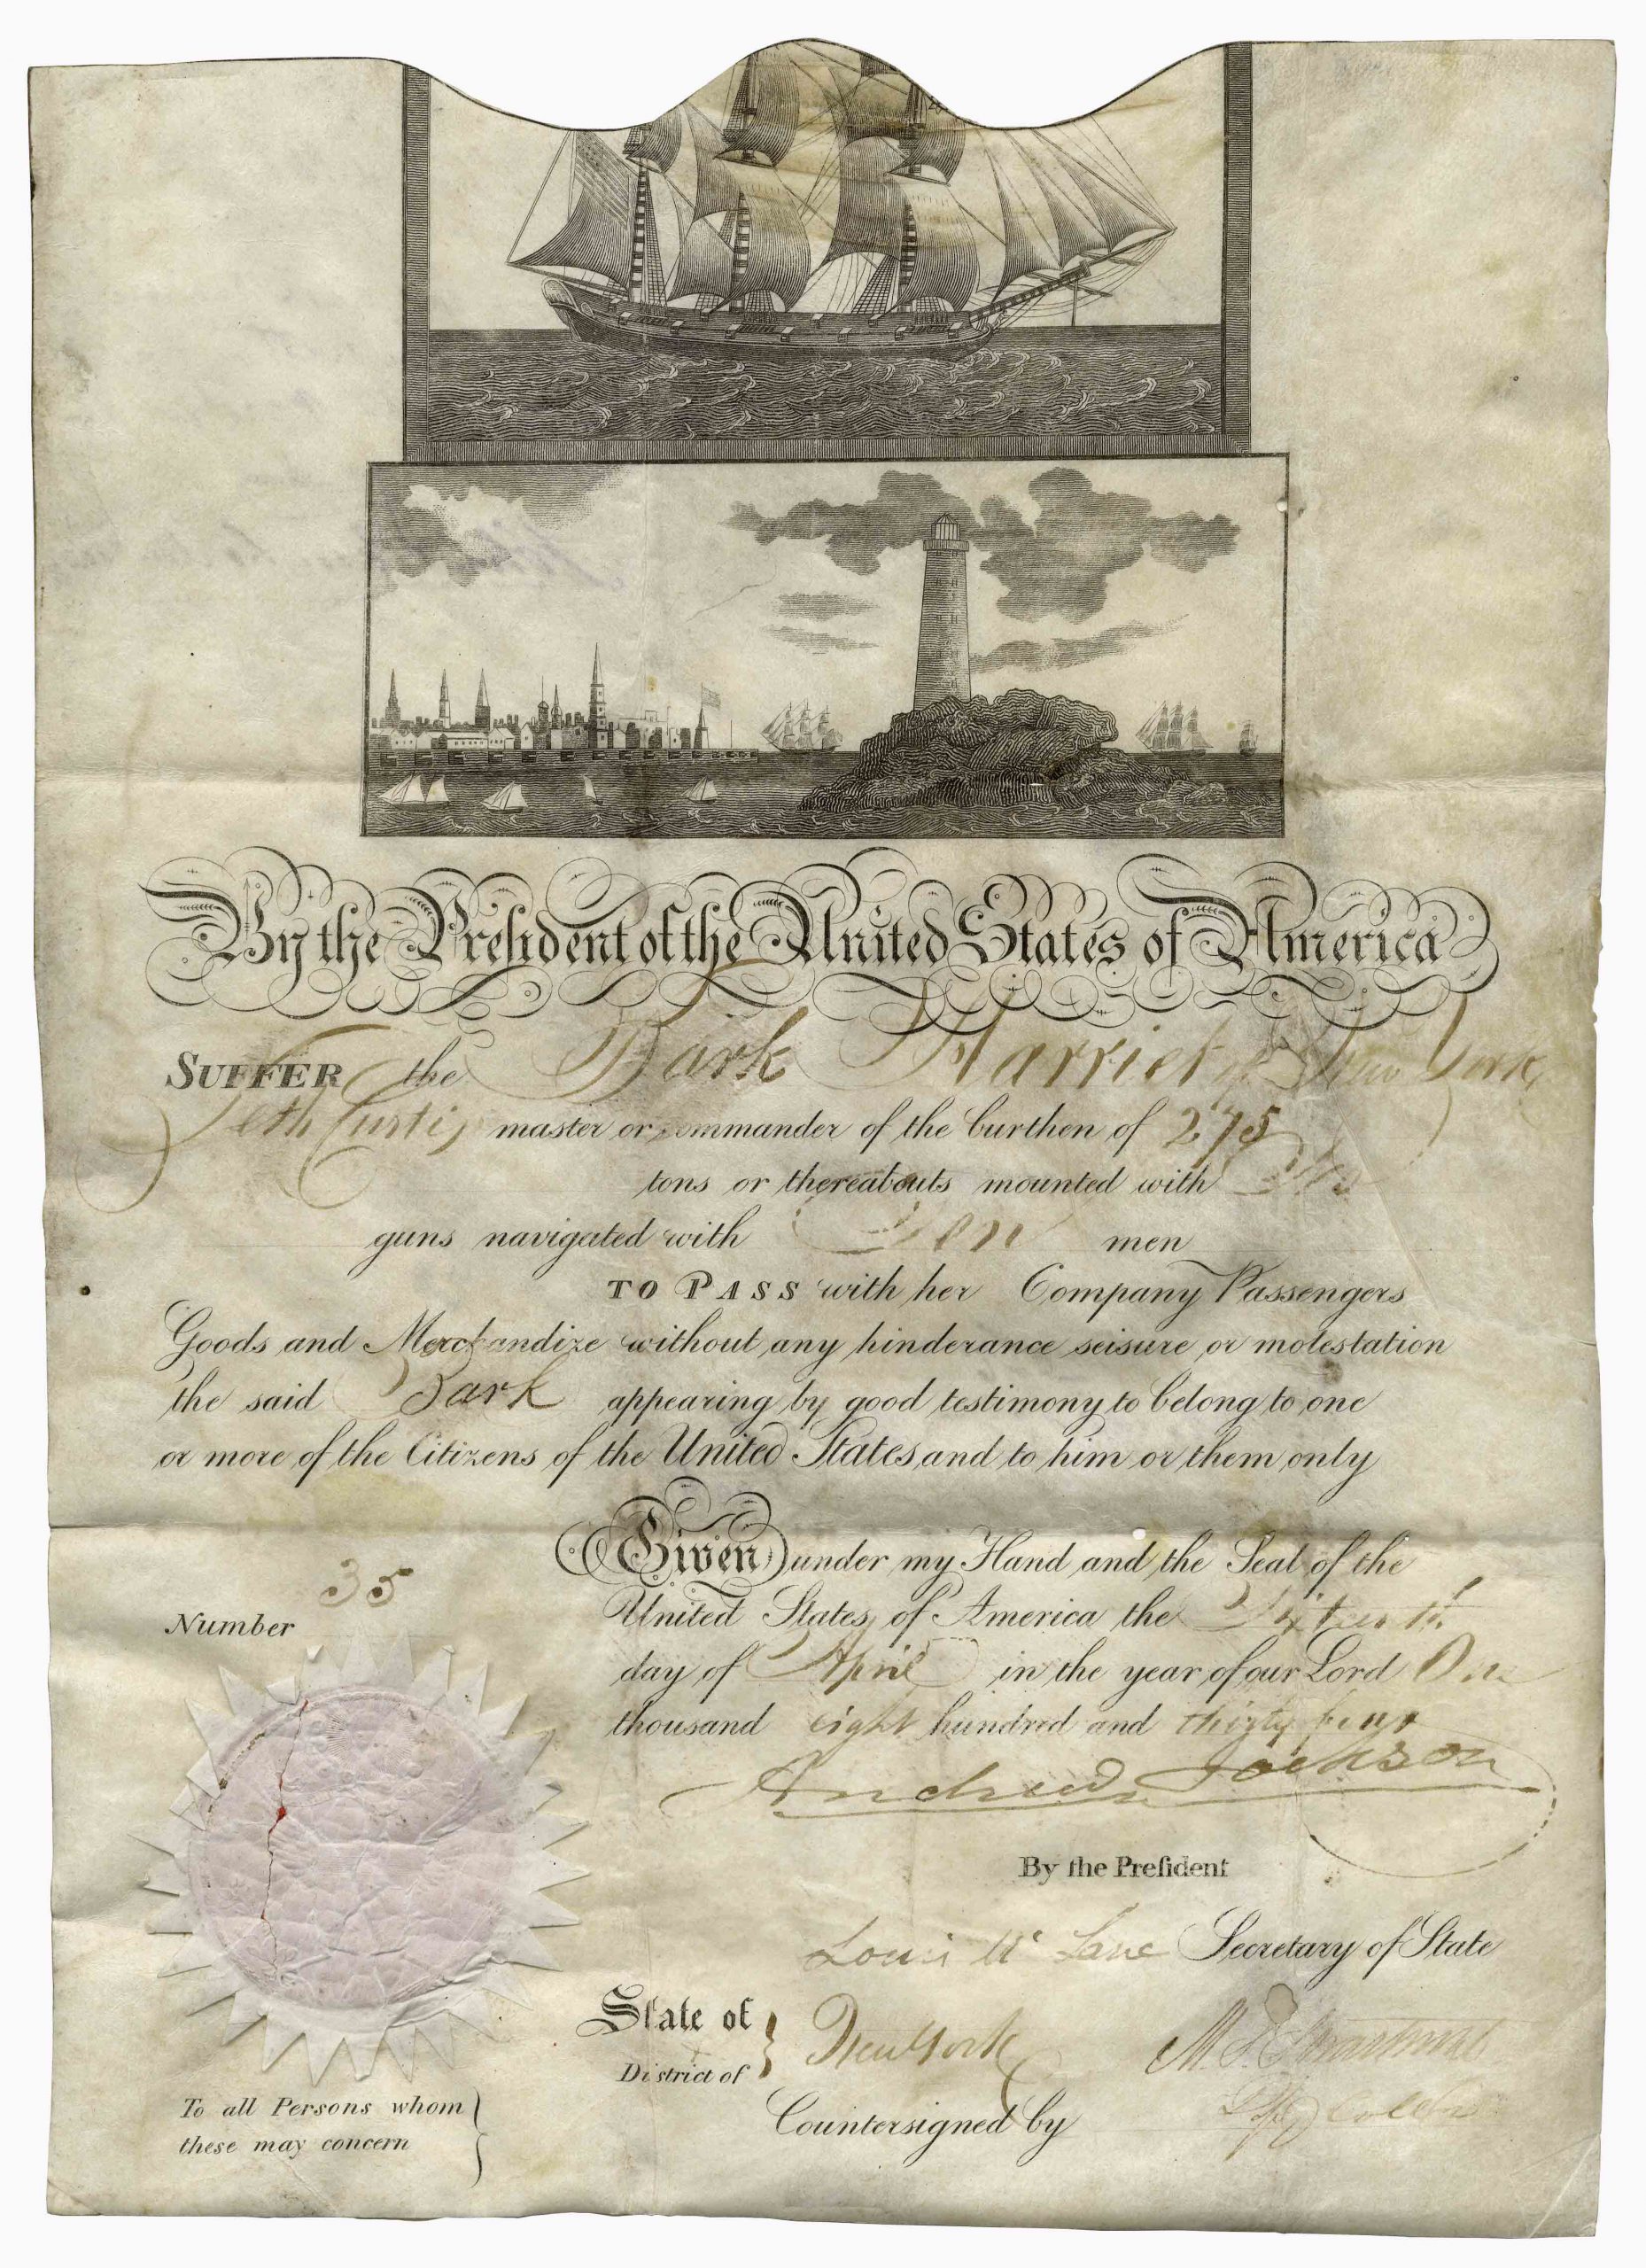 By the President of the United States of America
SUFFER the Bark Harriet of New York
Seth Curtis master or commander of the burthen of 275
tons or thereabouts mounted with No
guns navigated with Ten men
TO PASS with her Company Passengers
Goods and Merchandize without any hinderance seisure or molestation
the said Bark appearing by good testimony to belong to one
or more of the Citizens of the United States and to him or them only
Given under my Hand and the Seal of the
United States of America the
day of April in the year of our Lord One
thousand eight hundred and thirty four
Andrew Jackson
By the Preſident
Louis Mc Lane Secretary of State
Number 35
State of
District of
New York
Countersigned by
To all Persons whom
these may concern